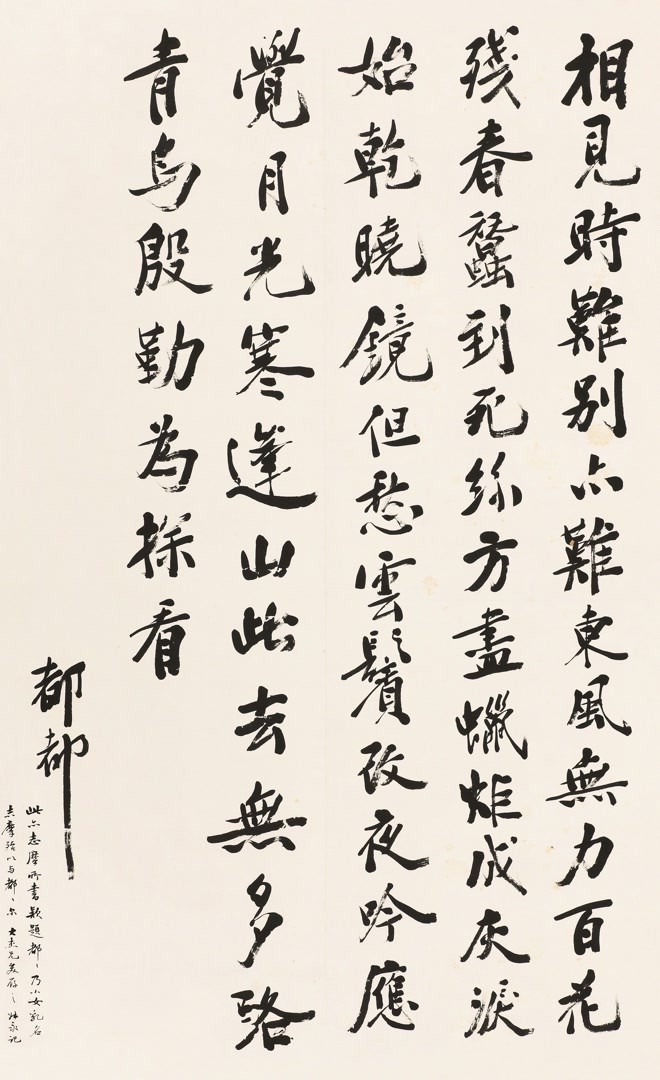 相見時難別亦難東風無力百花
殘春蠶到死絲方盡蠟炬成灰淚
始乾曉鏡但愁雲鬢改夜吟應
覺月光寒蓬山此去無多路
青鳥殷勤為探看
都都
此亦志摩所書款題都〻乃小女乳名
志摩以与都〻尔 兄存之永記